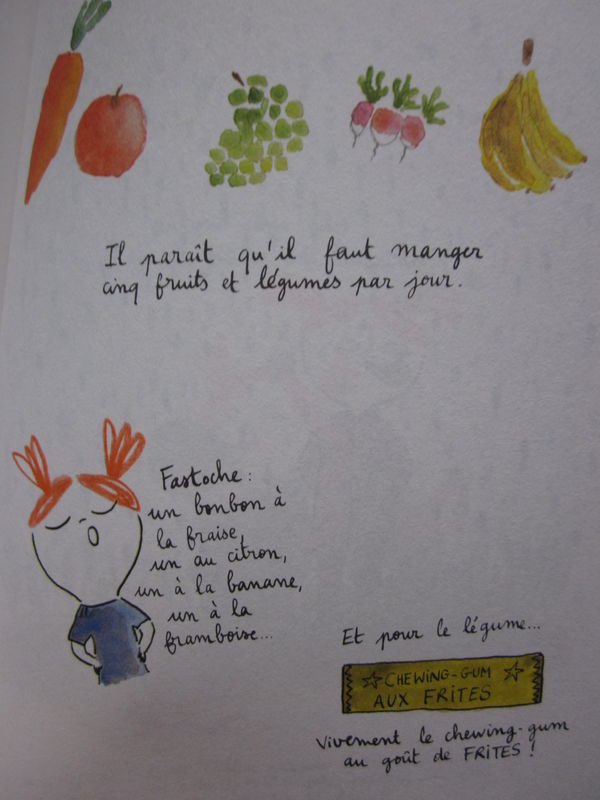 Il paraît qu'il faut manger
cinq fruits et légumes par jour.
Fastoche :
un bonbon à
la fraise,
un au citron,
un à la banane,
un à la
framboise...
Et pour le légume...
CHEWING-GUM
AUX FRITES
Vivement le chewing-gum
au goût de FRITES !